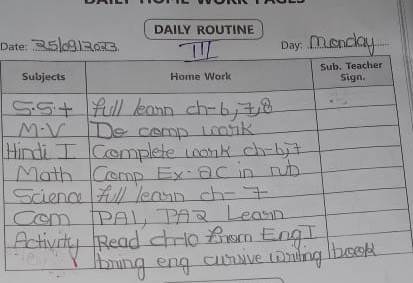 DAILY ROUTINE
Date: 25/09/2023 III Day: Monday
Subjects Home Work Sub. Teacher Sign.
S.S.t full learn ch-6,7,8
M.V Do comp work
Hindi I Complete work ch-6,7
Math Comp Ex-2C in nb
Science full learn ch-7
Com PA1, PA2 Learn
Activity Read ch-10 from Eng I
bring eng cursive writing book